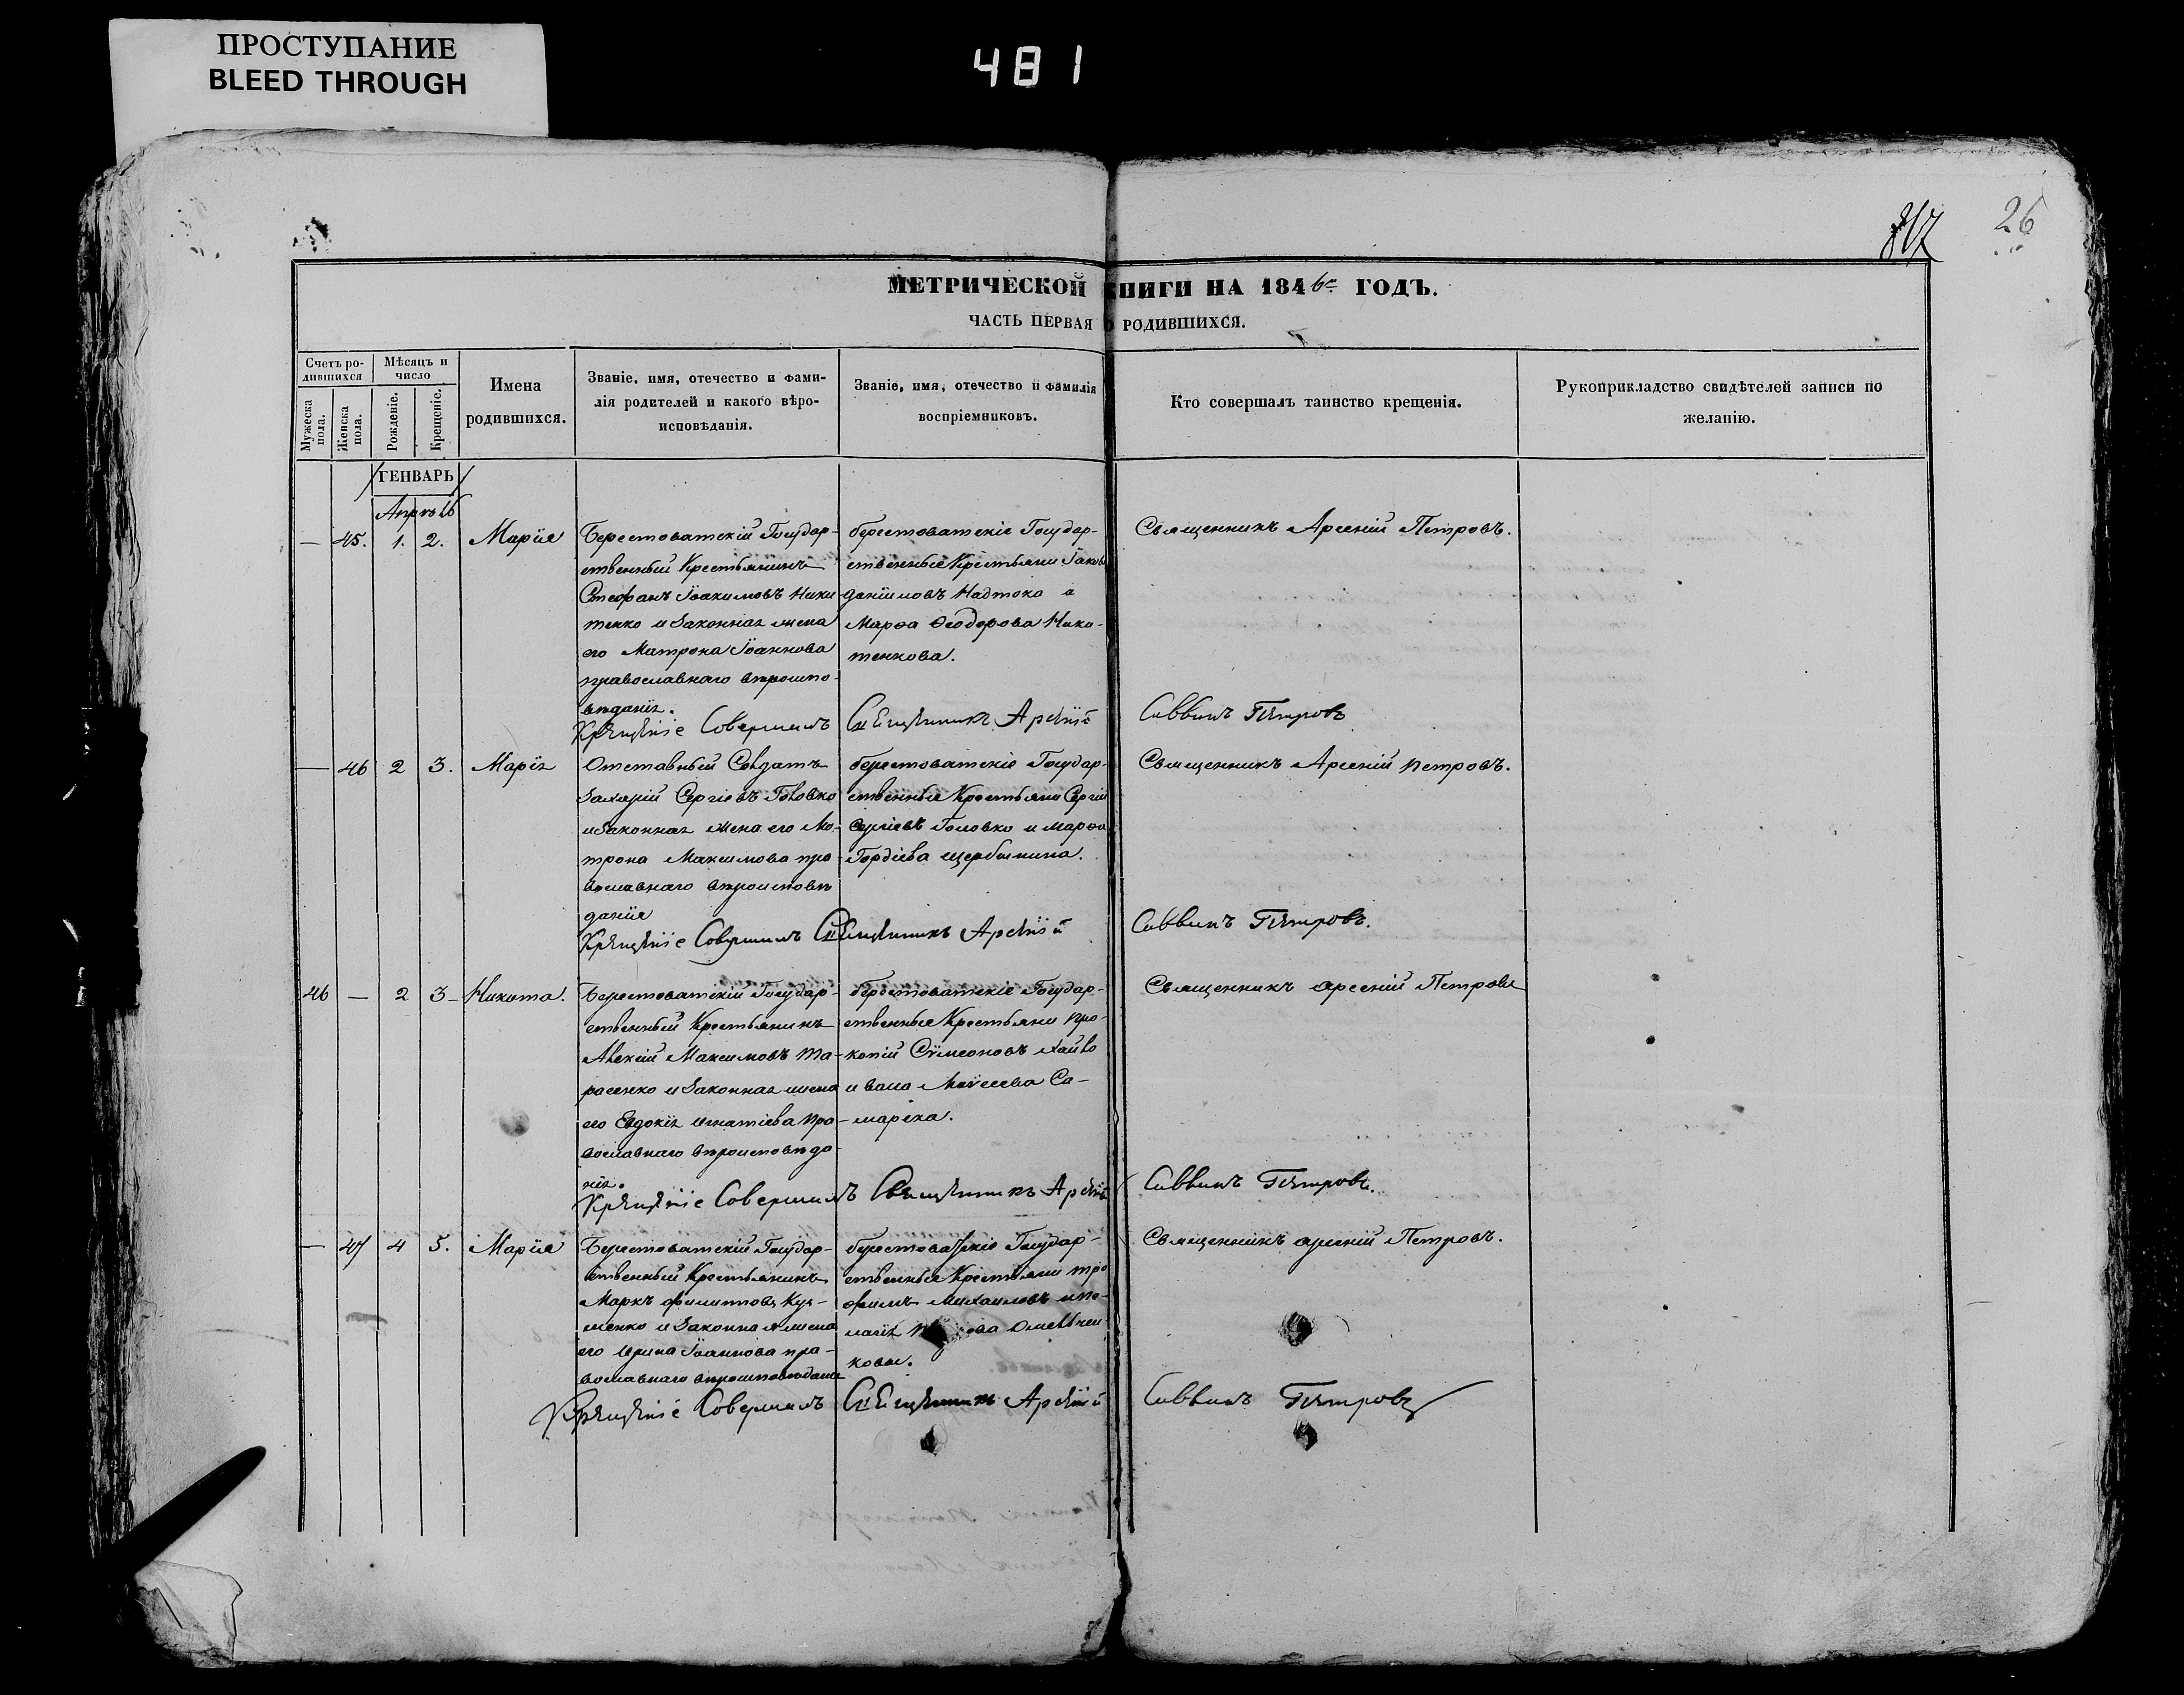 ПРОСТУПАНИЕ
BLEED THROUGH
481
817
26
МЕТРИЧЕСКОЙ КНИГИ НА 1846й ГОДЪ.
ЧАСТЬ ПЕРВАЯ О РОДИВШИХСЯ.
Счетъ ро-
дившихся
Мужеска пола.
Женска пола.
Мѣсяцъ и
число
Рожденіе.
Крещеніе.
Имена
родившихся.
Званіе, имя, отечество и фами-
лія родителей и какого вѣро-
исповѣданія.
Званіе, имя, отечество и фамилія
воспріемниковъ.
Кто совершалъ таинство крещенія.
Рукоприкладство свидѣтелей записи по
желанію.
ГЕНВАРЬ
Апрѣль
— 45. 1. 2. Марія
Берестоватскій Государ-
ственный Крестьянинъ
Стефанъ Іоакимовъ Ники-
тенко и Законная жена
его Матрона Іоаннова
православнаго вѣроиспо-
вѣданія.
берестоватскіе Государ-
ственные Крестьяни Іаковъ
Даніиловъ Надтока и
Марѳа Ѳеодорова Ники-
тенкова.
Священникъ Арсеній Петровъ.
Крещеніе Совершилъ Священникъ Арсеній Саввинъ Петровъ
— 46 2 3. Марія
Отставный Солдатъ
Захарій Сергіевъ Головко
и Законная жена его Ма-
трона Максимова пра-
вославнаго вѣроисповѣ
данія
берестоватскіе Государ-
ственные Крестьяни Сергій
Сергіевъ Головко и Марѳа
Гордіева щербинина.
Священникъ Арсеній Петровъ.
Крещеніе Совершилъ Священникъ Арсеній Саввинъ Петровъ.
46 — 2 3 Никита.
Берестоватскій Государ-
ственный Крестьянинъ
Алексій Максимовъ Та-
расенко и Законная жена
его Евдокія игнатіева пра-
вославнаго вѣроисповѣда-
нія.
берестоватскіе Государ-
ственные Крестьяни Про-
копій Сѵмеоновъ Хайло
и васса Моѵсеева Са-
марска.
Священникъ Арсеній Петровъ
Крещеніе Совершилъ Священникъ Арсеній Саввинъ Петровъ.
— 47 4 5. Марія
Берестоватскій Государ-
ственный Крестьянинъ
Маркъ филипповъ Куз-
менко и Законная жена
его Ирина Іоаннова пра-
вославнаго вѣроисповѣданія
берестоватскіе Государ-
ственные Крестьяни Тро-
фимъ Михаиловъ и Пе-
лагія Омельчен-
ковы.
Священникъ Арсеній Петровъ.
Крещеніе Совершилъ Священникъ Арсеній Саввинъ Петровъ